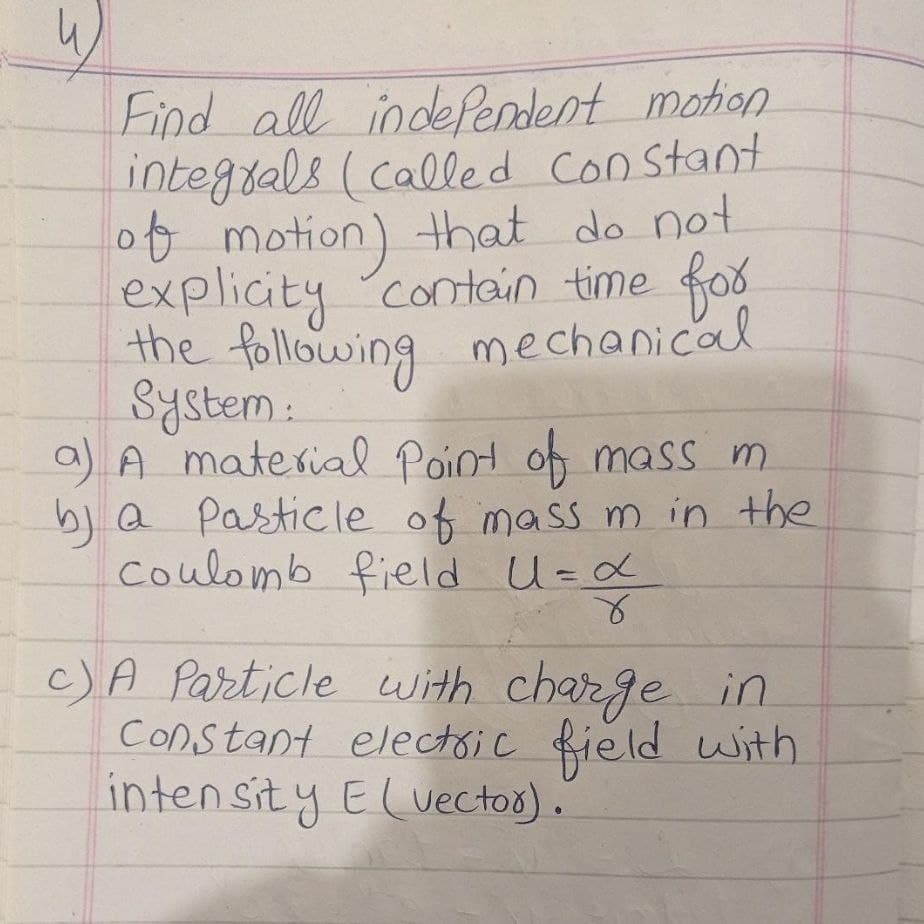 4)
Find all independent motion
integrals (called constant
of motion) that do not
explicity contain time for
the following mechanical
System:
a) A material Point of mass m
b) a Particle of mass m in the
coulomb field U = α
r
c) A Particle with charge in
Constant electric field with
intensity E (vector).